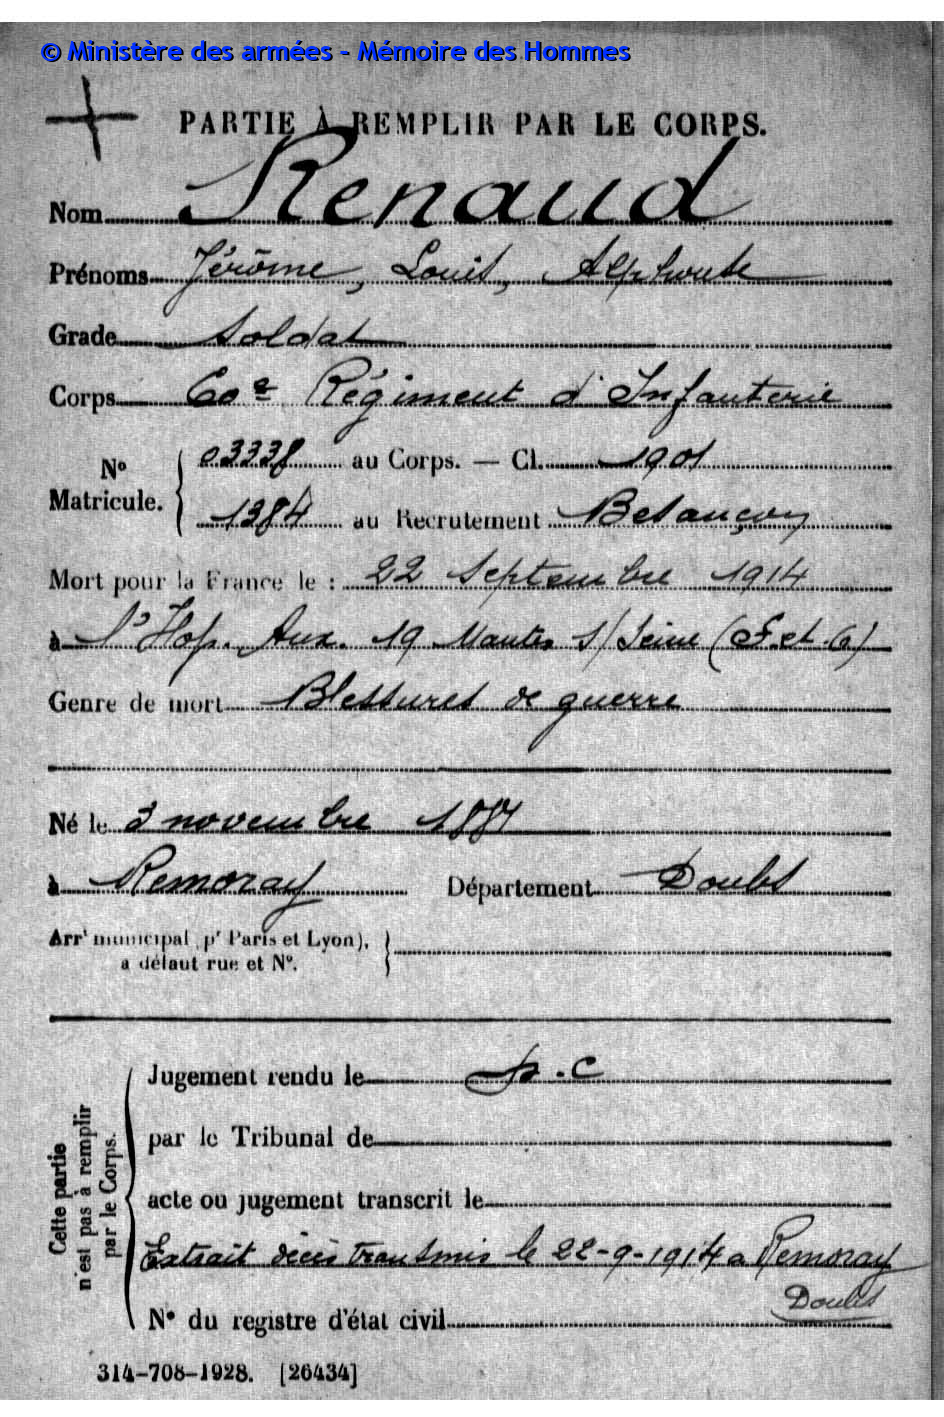 © Ministère des armées - Mémoire des Hommes
PARTIE À REMPLIR PAR LE CORPS.
Nom Renaud
Prénoms Jérôme, Louis, Alphonse
Grade Soldat
Corps 60e Régiment d'Infanterie
No Matricule. 03338 au Corps. — Cl. 1901
1384 au Recrutement Besançon
Mort pour la France le : 22 Septembre 1914
à l'Hop. Aux. 19 Mantes s/Seine (S. et O)
Genre de mort Blessures de guerre
Né le 3 novembre 1881
à Remoray Département Doubs
Arrt municipal (pr Paris et Lyon),
à défaut rue et No.
Cette partie n'est pas à remplir par le Corps.
Jugement rendu le
par le Tribunal de
acte ou jugement transcrit le
Extrait décès transmis le 22-9-1914 a Remoray
Doubs
No du registre d'état civil
314-708-1928. [26434]